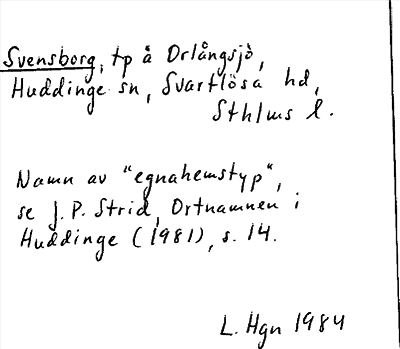 Svensborg, tp å Orlångsjö,
Huddinge sn, Svartlösa hd,
Sthlms l.
Namn av "egnahemstyp",
se J.P. Strid, Ortnamnen i
Huddinge (1981), s. 14.
L. Hgn 1984